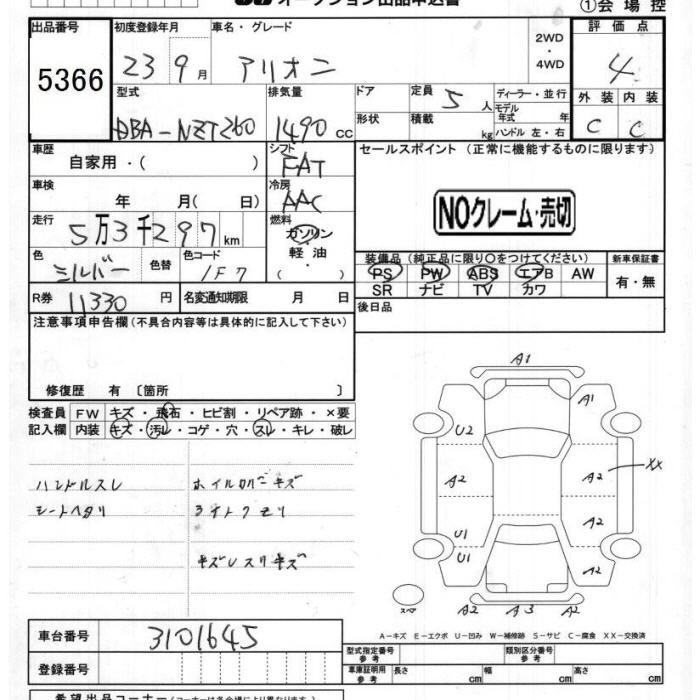 オークション出品申込書 ①会場控
出品番号 初度登録年月 車名・グレード 評価点
5366 23 9月 アリオン 2WD・4WD 4
型式 排気量 ドア 定員 5人 ディーラー・並行 外装 内装
DBA-NZT260 1490cc 形状 積載 kg モデル年式 年 ハンドル 左・右 C C
車歴 シフト セールスポイント (正常に機能するものに限ります)
自家用・( ) FAT
車検 冷房
年 月( 日) AAC NOクレーム・売切
走行 燃料
5万3千297km ガソリン
色 色替 色コード 軽油 装備品 (純正品に限り○をつけてください) 新車保証書
シルバー 1F7 ・( ) PS PW ABS エアB AW 有・無
SR ナビ TV カワ
R券 11330円 名変通知期限 月 日 後日品
注意事項申告欄(不具合内容等は具体的に記入して下さい)
修復歴 有 〔箇所 〕
検査員 FW キズ・飛石・ヒビ割・リペア跡・×要
記入欄 内装 キズ・汚レ・コゲ・穴・スレ・キレ・破レ
ハンドルスレ ホイルカバーキズ
シートヘタリ
キズレスリキズ
A1
A1
U2
A2 A2 XX
A2
U1
U1 A2
スペア A2 A3 A2
A-キズ E-エクボ U-凹み W-補修跡 S-サビ C-腐食 XX-交換済
車台番号 3101645
型式指定番号 参考 類別区分番号 参考
登録番号 車庫証明用 参考 長さ cm 幅 cm 高さ cm
希望出品コーナー